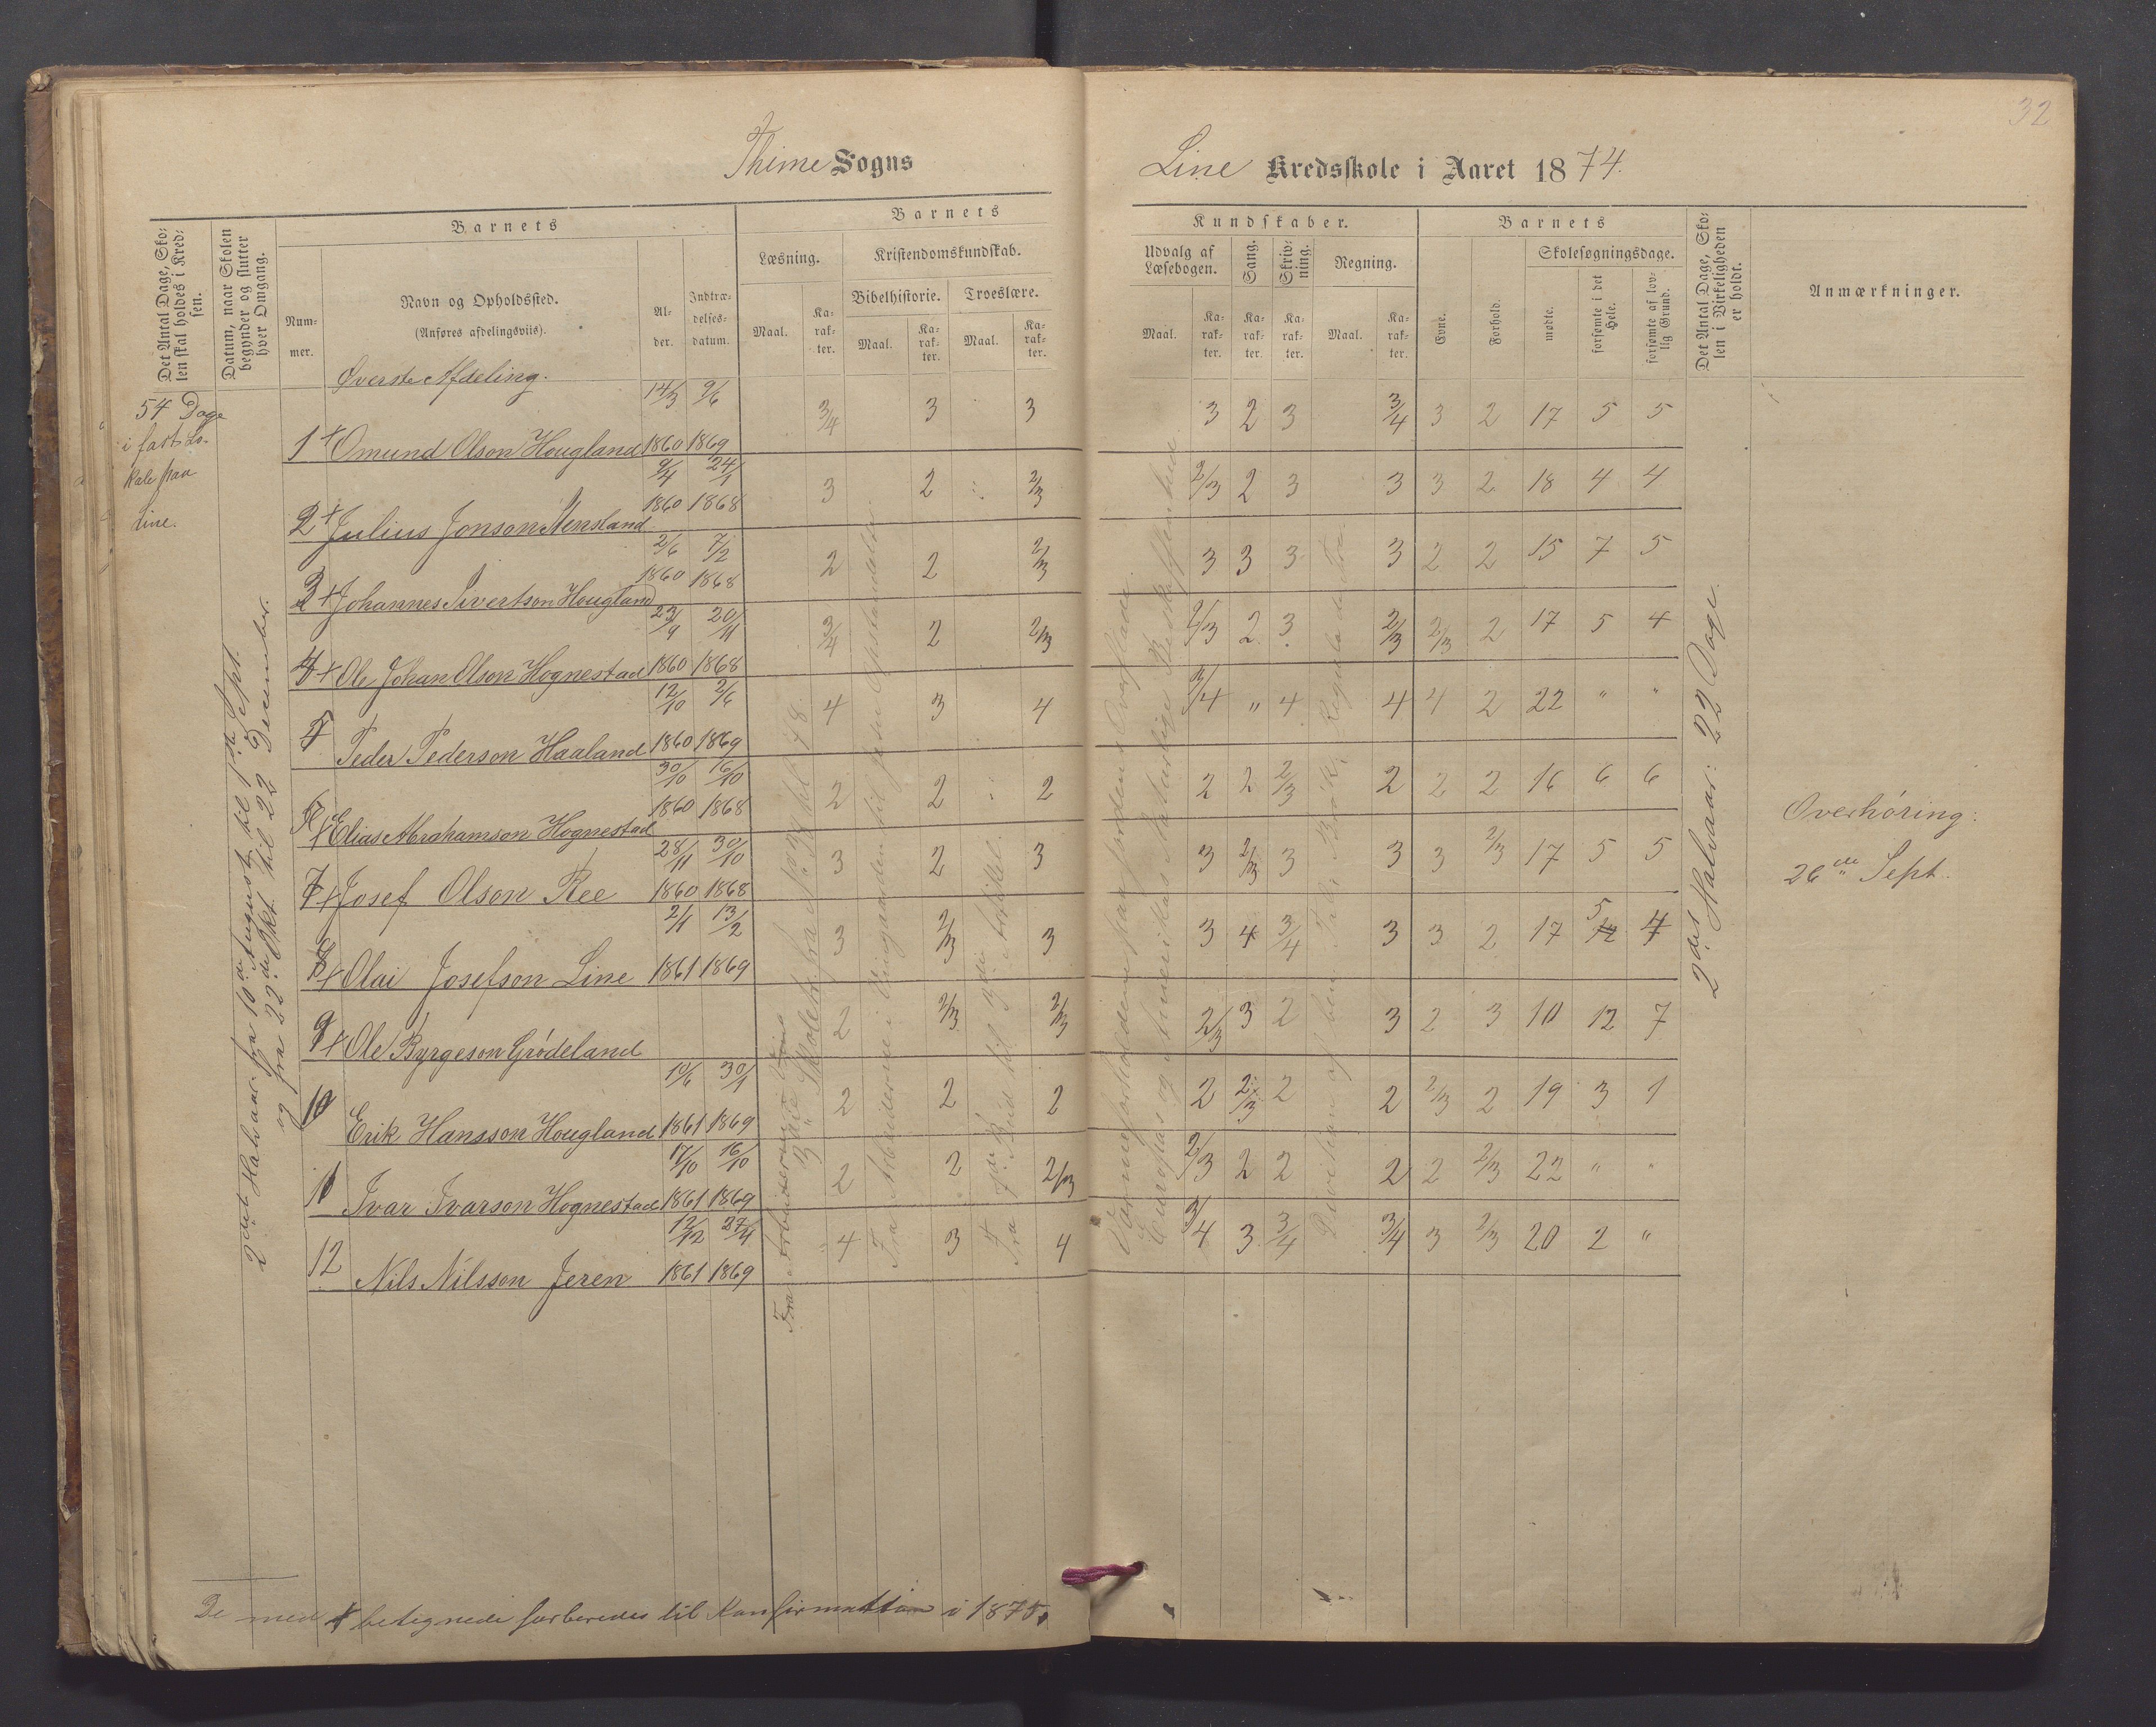 32
Thime Sogns
Line Kredsskole i Aaret 1874.
Det Antal Dage, Skolen skal holdes i Kredsen.
Datum, naar Skolen begynder og slutter hver Omgang.
Barnets
Nummer.
Navn og Opholdssted.
(Anføres afdelingsviis).
Alder.
Indtrædelsesdatum.
Barnets
Kundskaber.
Læsning.
Maal.
Karakter.
Kristendomskundskab.
Bibelhistorie.
Maal.
Karakter.
Troeslære.
Maal.
Karakter.
Udvalg af Læsebogen.
Maal.
Karakter.
Sang.
Karakter.
Skrivning.
Karakter.
Regning.
Maal.
Karakter.
Barnets
Evne.
Forhold.
Skolesøgningsdage.
mødte.
forsømte i det Hele.
forsømte af lovlig Grund.
Det Antal Dage, Skolen i Virkeligheden er holdt.
Anmærkninger.
Øverste Afdeling.
54 Dage
i fast Lo-
kale paa
Line.
2det Halvaar: fra 10de August til 1ste Sept.
og fra 22de Okt. til 22 December.
1 + Omund Olson Hougland 14/3 1860 9/6 1869 3/4 3 3 3 2 3 3/4 3 2 17 5 5
2 + Julius Jonson Stensland 9/4 1860 24/1 1868 3 2 2/3 2/3 2 3 3 3 2 18 4 4
3 + Johannes Sivertson Hougland 2/6 1860 7/2 1868 2 2 2/3 3 3 3 3 2 2 15 7 5
4 + Ole Johan Olson Hognestad 23/9 1860 20/11 1868 3/4 2 2/3 2/3 2 3 2/3 2/3 2 17 5 4
5 Peder Pederson Haaland 12/10 1860 2/6 1869 4 3 4 3/4 " 4 4 4 2 22 " "
6 + Elias Abrahamson Hognestad 30/10 1860 16/10 1868 2 2 2 2 2 2/3 2 2 2 16 6 6
7 + Josef Olson Ree 28/11 1860 30/10 1868 3 2 3 3 2/3 3 3 3 2/3 17 5 5
8 + Olai Josefson Line 2/1 1861 13/2 1869 3 2/3 3 3 4 3/4 3 3 2 17 5 4
9 + Ole Byrgeson Grødeland 2 2/3 2/3 2/3 3 2 3 2 3 10 12 7
10 Erik Hansson Hougland 10/6 1861 30/1 1869 2 2 2 2 2/3 2 2 2/3 2 19 3 1
11 Ivar Ivarson Hognestad 17/10 1861 16/10 1869 2 2 2/3 2/3 2 2 2 2 2/3 22 " "
12 Nils Nilsson Jeren 12/12 1861 27/4 1869 4 3 4 3/4 3 3/4 3/4 3 2/3 20 2 "
Fra Arbeiderne i Viingaarden til Jesu Opstandelse.
Fra 7de Bud til 3die Artikel.
Europas og Amerikas naturlige Beskaffenhed.
2det Halvaar: 22 Dage.
Overhøring:
26de Sept.
De med + betegnede forberedes til Konfirmation i 1875.